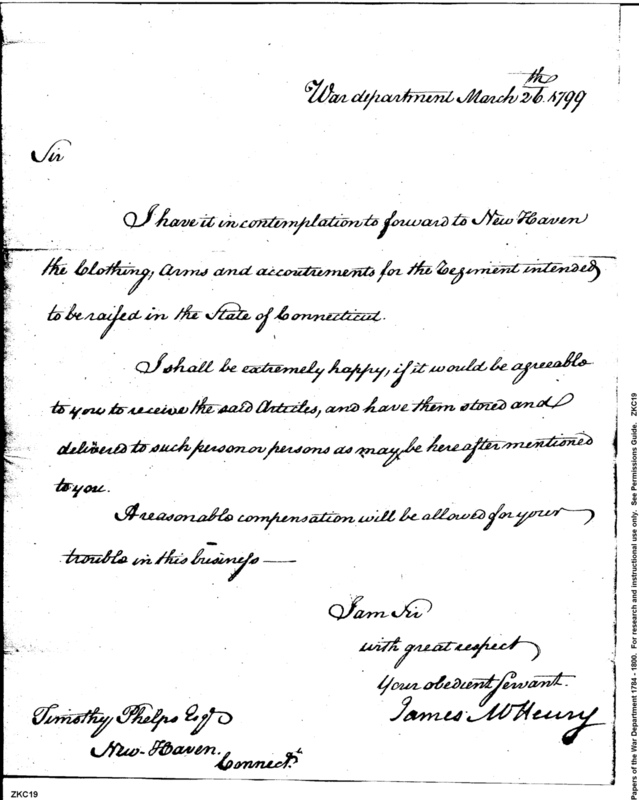 War department March 26th 1799
Sir
I have it in contemplation to forward to New Haven
the Clothing, Arms and accoutrements for the Regiment intended
to be raised in the State of Connecticut.
I shall be extremely happy, if it would be agreeable
to you to receive the said Articles, and have them stored and
delivered to such person or persons as may be hereafter mentioned
to you.
A reasonable compensation will be allowed for your
trouble in this business —
I am Sir
with great respect
Your obedient Servant.
James McHenry
Timothy Phelps Esqr
New-Haven.
Connectt.
ZKC19
Papers of the War Department 1784 - 1800. For research and instructional use only. See Permissions Guide. ZKC19